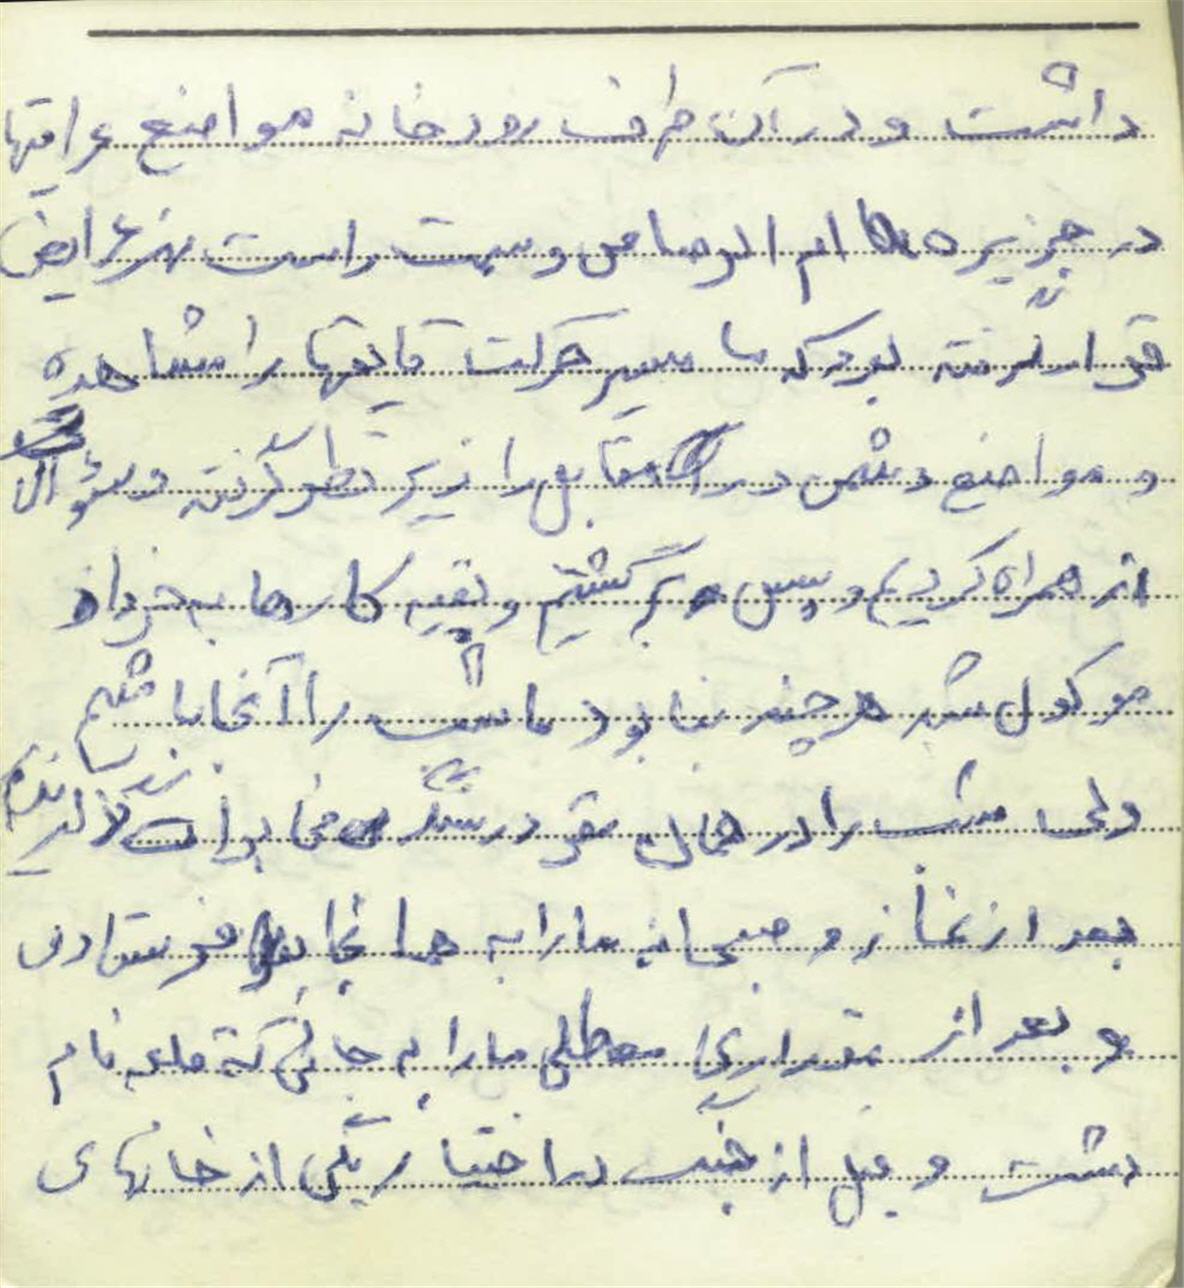 داشت و در آن طرف رودخانه مواضع عراقیها
در جزیره ام الرصاص و سمت راست نهر عرایض
قرار گرفته بود که ما مسیر حرکت قایقها را مشاهده
و مواضع دشمن در مقابل را زیر نظر گرفته و سؤال
از همراه کردیم و سپس برگشتیم و بقیه کارها به فردا
موکول شد هر چند بنا بود ما شب را آنجا باشیم
ولی شب را در همان مقر در سنگر مخابرات گذراندیم
بعد از نماز و صبحانه ما را به همانجا فرستادن
و بعد از مقداری معطلی ما را به جائی که قلعه نام
داشت و قبل از جنگ در اختیار یکی از خانهای